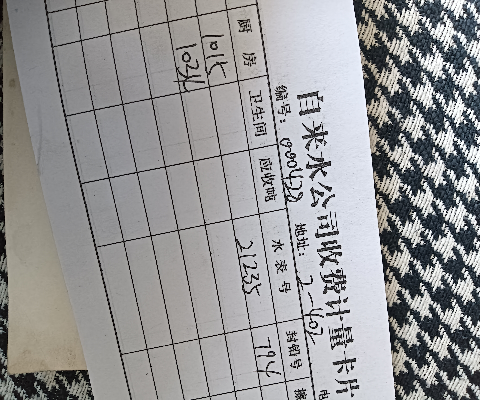 自来水公司收费计量卡片
编号: 000428 地址: 2-402
厨房 卫生间 应收吨 水表号 封铅号
1015 21235 794
1036